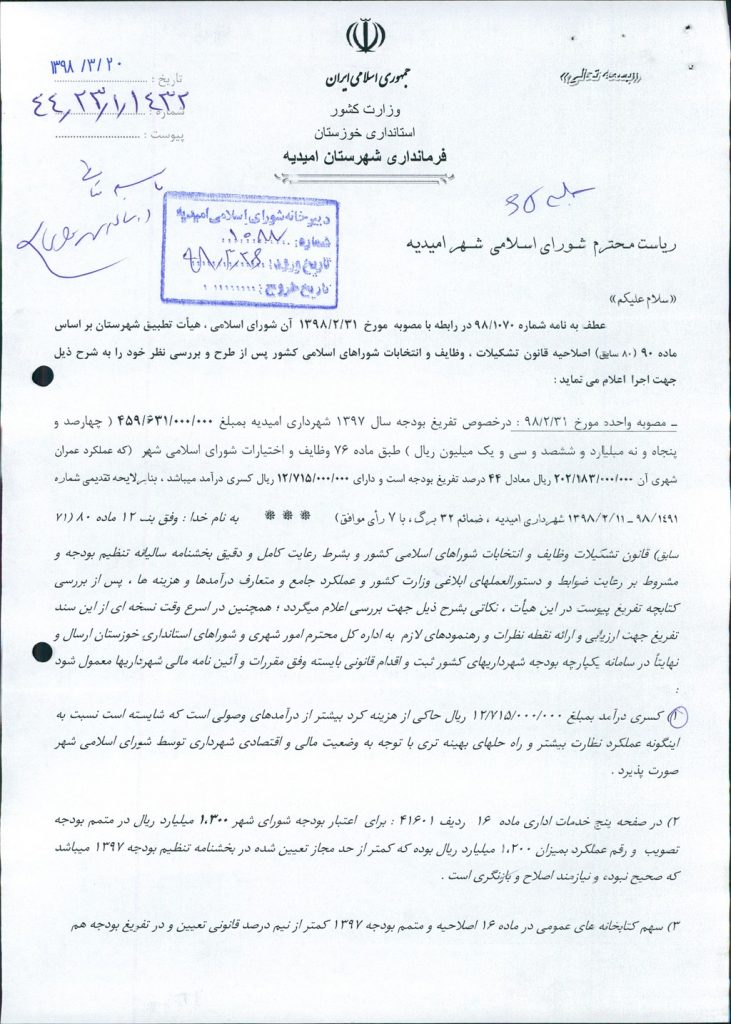 «بسمه تعالی»
جمهوری اسلامی ایران
وزارت کشور
استانداری خوزستان
فرمانداری شهرستان امیدیه
تاریخ : ۱۳۹۸/۳/۲۰
شماره : ۴۴/۲۳/۱/۱۴۳۲
پیوست :
دبیرخانه شورای اسلامی امیدیه
شماره: ۱۰۸۸
تاریخ ورود:
تاریخ خروج:
ریاست محترم شورای اسلامی شهر امیدیه
«سلام علیکم»
عطف به نامه شماره ۹۸/۱۰۷۰ در رابطه با مصوبه مورخ ۱۳۹۸/۲/۳۱ آن شورای اسلامی ، هیأت تطبیق شهرستان بر اساس
ماده ۹۰ (۸۰ سابق) اصلاحیه قانون تشکیلات ، وظایف و انتخابات شوراهای اسلامی کشور پس از طرح و بررسی نظر خود را به شرح ذیل
جهت اجرا اعلام می نماید :
ـ مصوبه واحده مورخ ۹۸/۲/۳۱ : درخصوص تفریغ بودجه سال ۱۳۹۷ شهرداری امیدیه بمبلغ ۴۵۹/۶۳۱/۰۰۰/۰۰۰ ( چهارصد و
پنجاه و نه میلیارد و ششصد و سی و یک میلیون ریال ) طبق ماده ۷۶ وظایف و اختیارات شورای اسلامی شهر (که عملکرد عمران
شهری آن ۲۰۲/۱۸۳/۰۰۰/۰۰۰ ریال معادل ۴۴ درصد تفریغ بودجه است و دارای ۱۲/۷۱۵/۰۰۰/۰۰۰ ریال کسری درآمد میباشد ، بنابرلایحه تقدیمی شماره
۹۸/۱۴۹۱ ـ ۱۳۹۸/۲/۱۱ شهرداری امیدیه ، ضمائم ۳۲ برگ ، با ۷ رأی موافق) *** به نام خدا : وفق بند ۱۲ ماده ۸۰ (۷۱
سابق) قانون تشکیلات وظایف و انتخابات شوراهای اسلامی کشور و بشرط رعایت کامل و دقیق بخشنامه سالیانه تنظیم بودجه و
مشروط بر رعایت ضوابط و دستورالعملهای ابلاغی وزارت کشور و عملکرد جامع و متعارف درآمدها و هزینه ها ، پس از بررسی
کتابچه تفریغ پیوست در این هیأت ، نکاتی بشرح ذیل جهت بررسی اعلام میگردد ؛ همچنین در اسرع وقت نسخه ای از این سند
تفریغ جهت ارزیابی و ارائه نقطه نظرات و رهنمودهای لازم به اداره کل محترم امور شهری و شوراهای استانداری خوزستان ارسال و
نهایتاً در سامانه یکپارچه بودجه شهرداریهای کشور ثبت و اقدام قانونی بایسته وفق مقررات و آئین نامه مالی شهرداریها معمول شود
:
۱) کسری درآمد بمبلغ ۱۲/۷۱۵/۰۰۰/۰۰۰ ریال حاکی از هزینه کرد بیشتر از درآمدهای وصولی است که شایسته است نسبت به
اینگونه عملکرد نظارت بیشتر و راه حلهای بهینه تری با توجه به وضعیت مالی و اقتصادی شهرداری توسط شورای اسلامی شهر
صورت پذیرد .
۲) در صفحه پنج خدمات اداری ماده ۱۶ ردیف ۴۱۶۰۱ : برای اعتبار بودجه شورای شهر ۱،۳۰۰ میلیارد ریال در متمم بودجه
تصویب و رقم عملکرد بمیزان ۱،۲۰۰ میلیارد ریال بوده که کمتر از حد مجاز تعیین شده در بخشنامه تنظیم بودجه ۱۳۹۷ میباشد
که صحیح نبوده و نیازمند اصلاح و بازنگری است .
۳) سهم کتابخانه های عمومی در ماده ۱۶ اصلاحیه و متمم بودجه ۱۳۹۷ کمتر از نیم درصد قانونی تعیین و در تفریغ بودجه هم